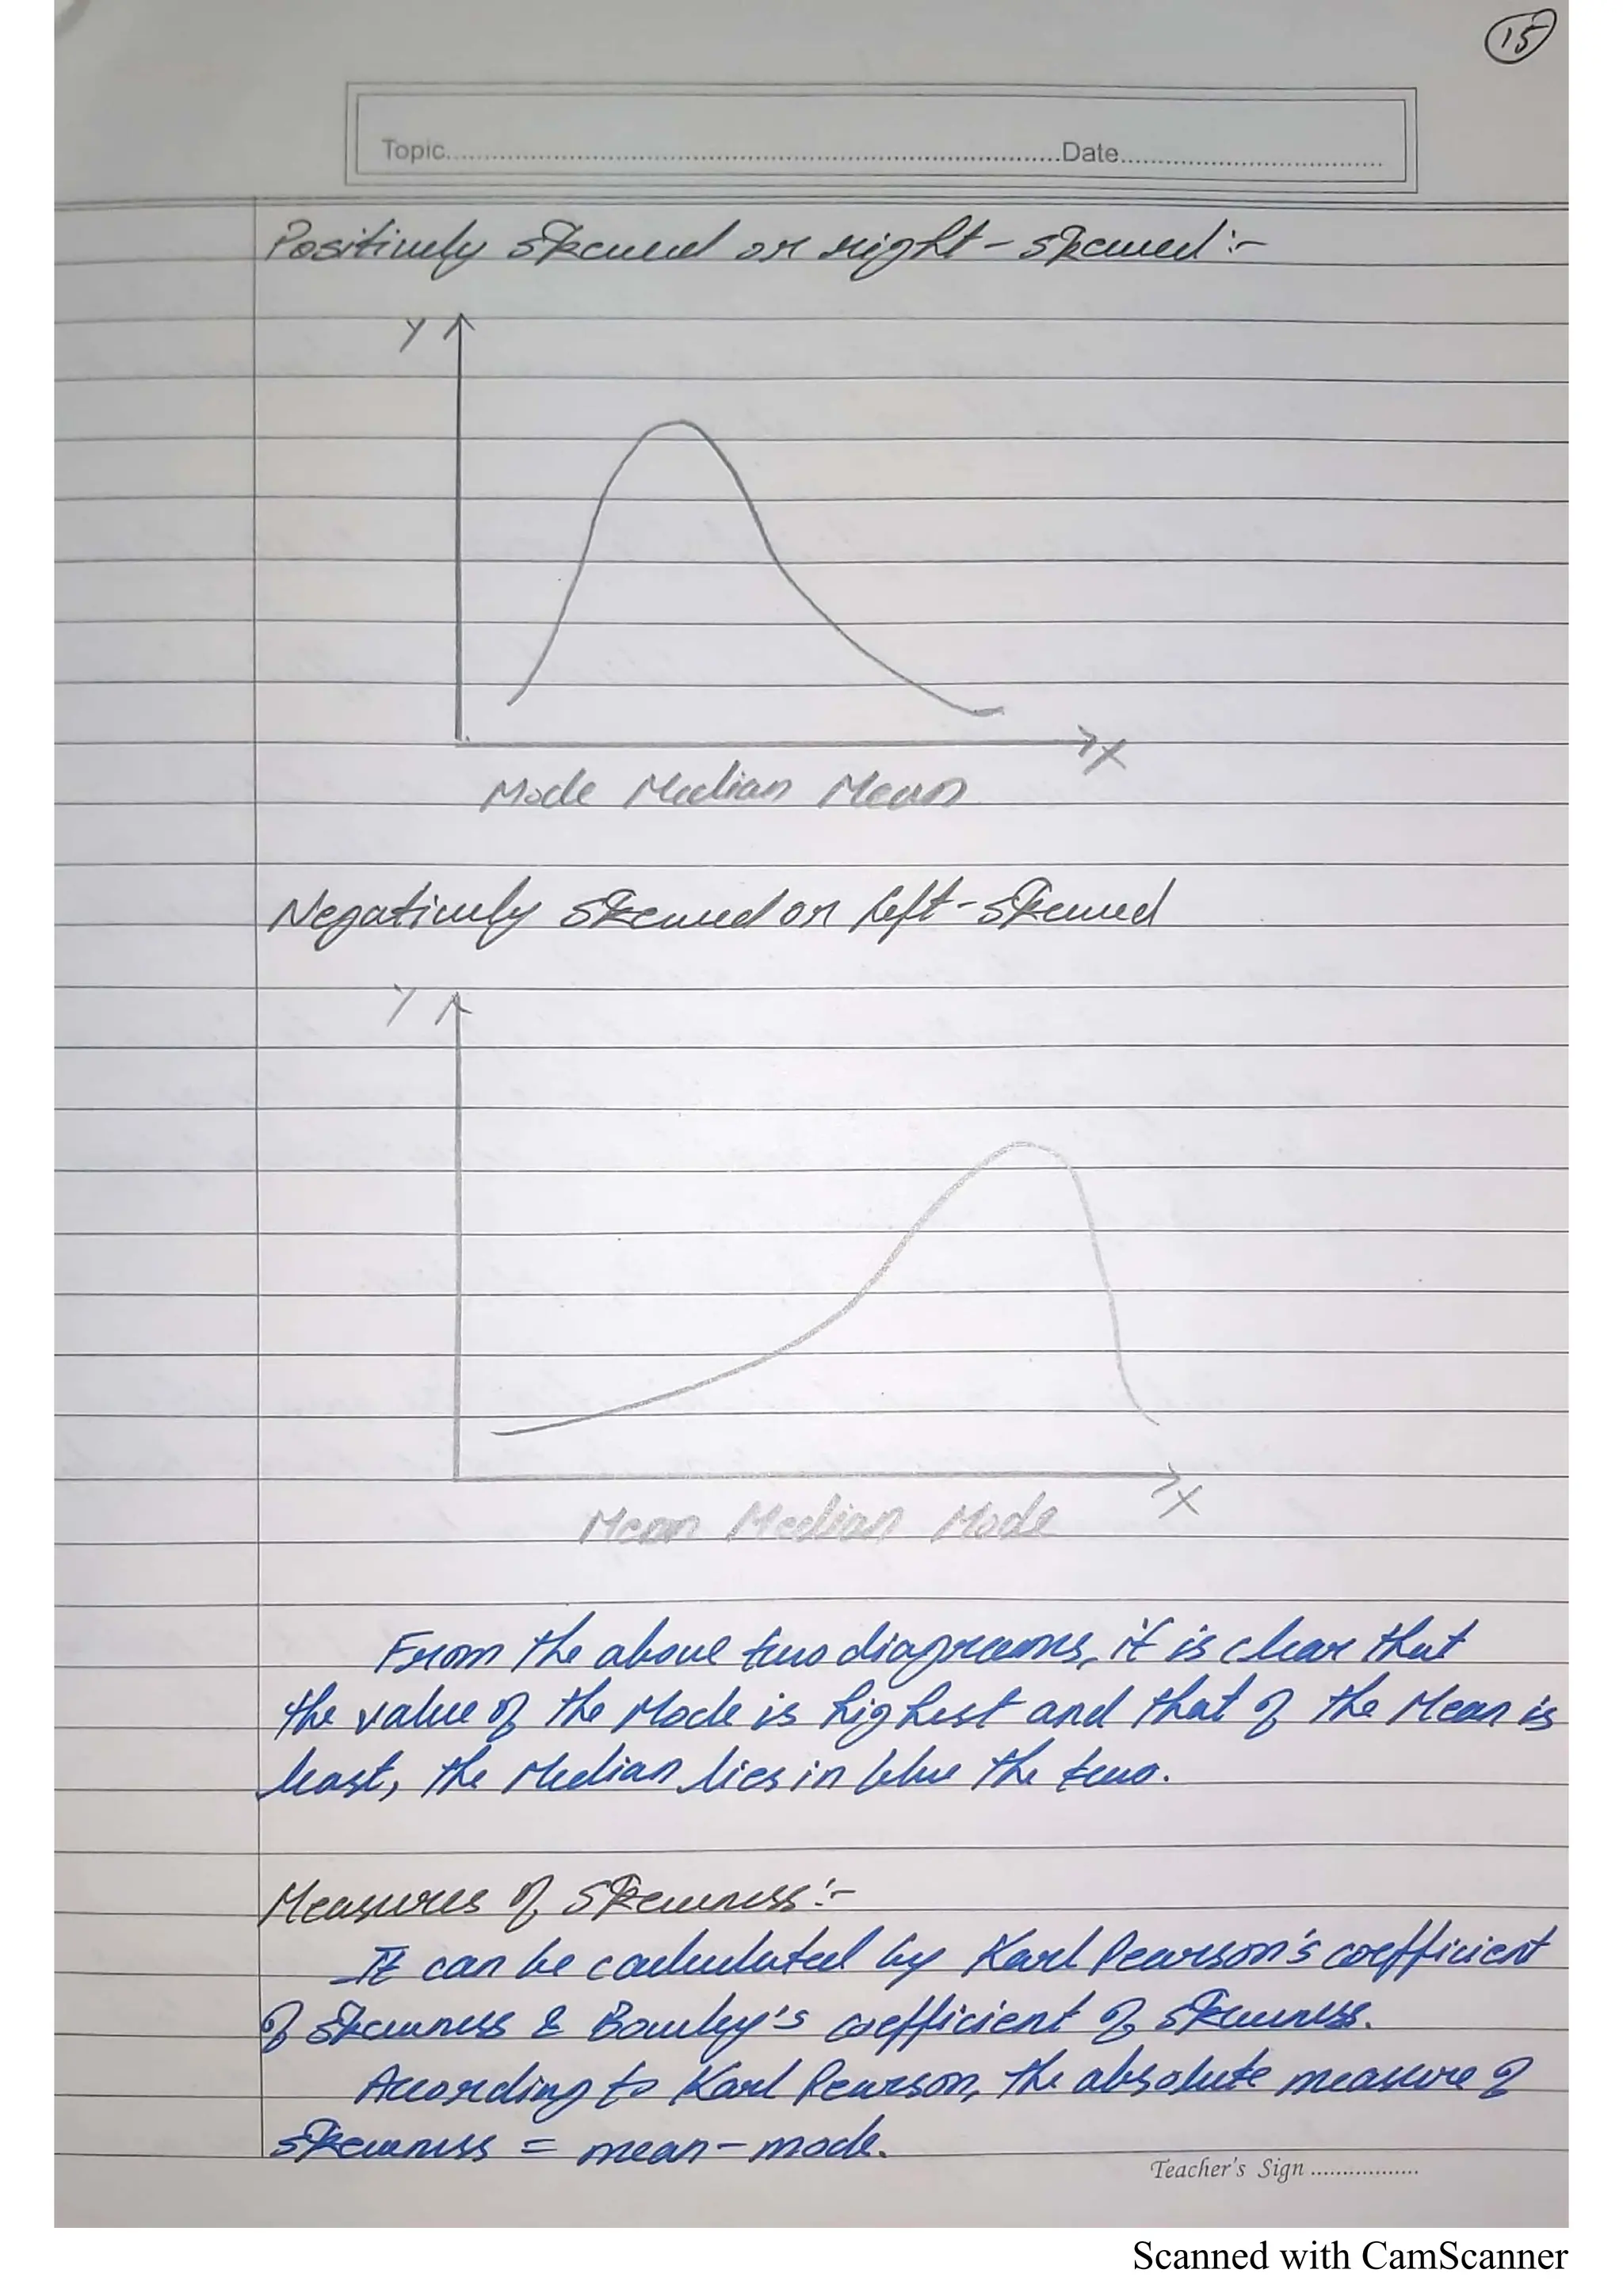 15
Topic..........Date..........
Positively skewed or right-skewed:-
Y
X
Mode Median Mean
Negatively skewed or left-skewed
Y
X
Mean Median Mode
From the above two diagrams, it is clear that
the value of the Mode is highest and that of the Mean is
least, the Median lies in b/w the two.
Measures of Skewness:-
It can be calculated by Karl Pearson's coefficient
of skewness & Bowley's coefficient of skewness.
According to Karl Pearson, the absolute measure of
skewness = mean-mode.
Teacher's Sign..........
Scanned with CamScanner